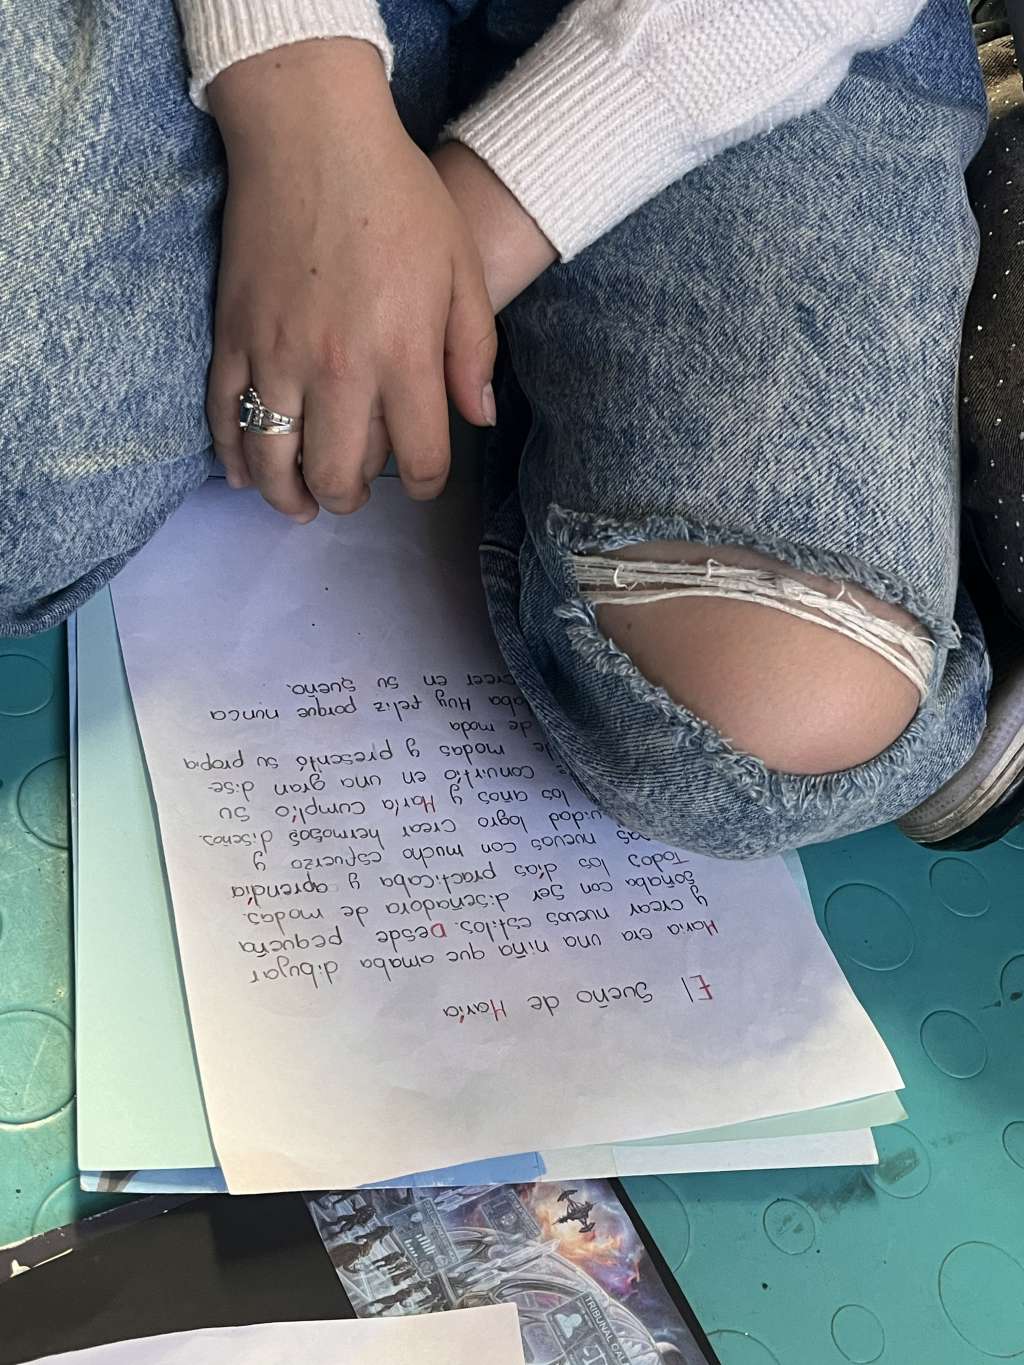 El Sueño de María
María era una niña que amaba dibujar
y crear nuevos estilos. Desde pequeña
soñaba con ser diseñadora de modas.
Todos los días practicaba y aprendía
nuevas con mucho esfuerzo y
logro crear hermosos diseños.
los años y María cumplío su
convirtío en una gran dise-
de modas y presentó su propia
de moda
Muy feliz porque nunca
creer en su sueño.
TRIBUNAL